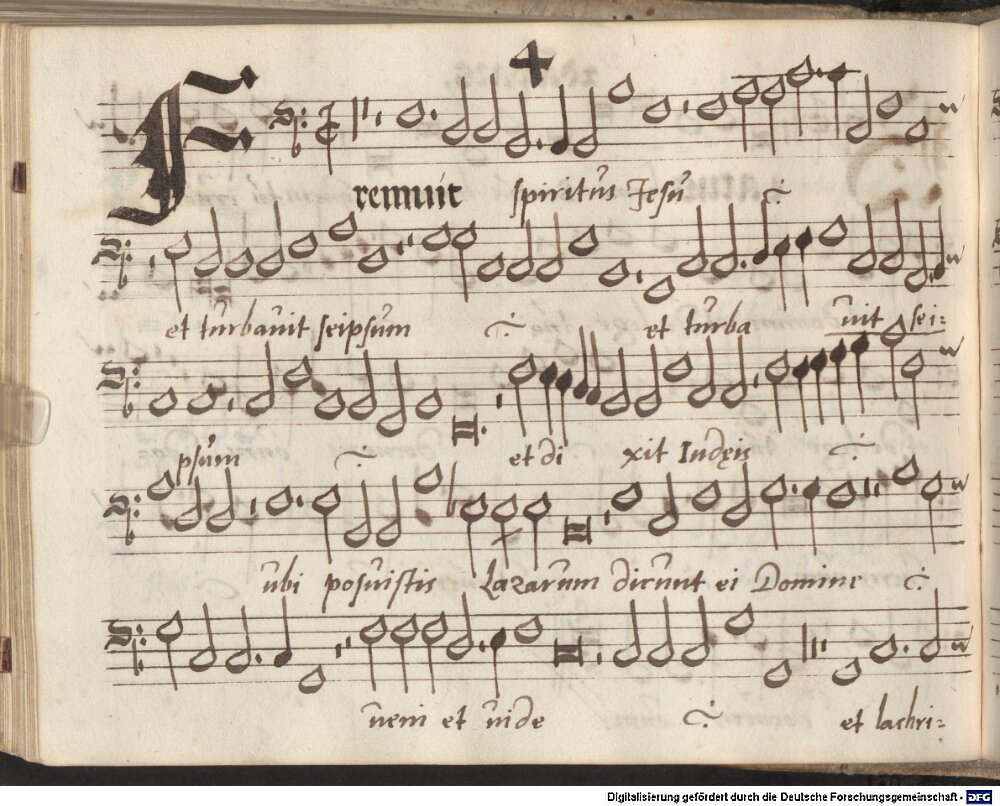 Fremuit spiritus Jesu
et turbavit seipsum et turba uit sei=
psum et di xit Iudęis
ubi posuistis Lazarum dicunt ei Domine
ueni et uide et lachri=
Digitalisierung gefördert durch die Deutsche Forschungsgemeinschaft - DFG